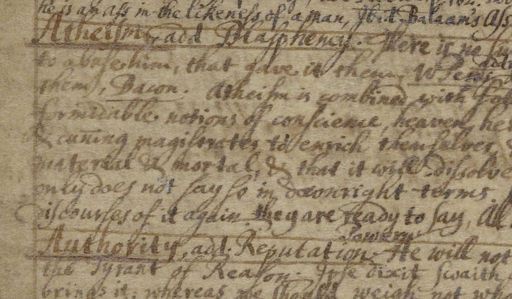 he is an ass in the likeness of a man,
Atheism, add Blasphemy. There is no
to abuse him, that gave it them.
them, Bacon. Atheism is combined with
formidable notions of conscience, heaven,
& cuning magistrates, to enrich themselves,
material & mortal, & that it will dissolve
only does not say so in downright terms
discourses of it again they are ready to say, All
Powery
Authority, add Reputation He will not
the Tyrant of Reason. Ipse dixit
brings it, whereas we should weigh not